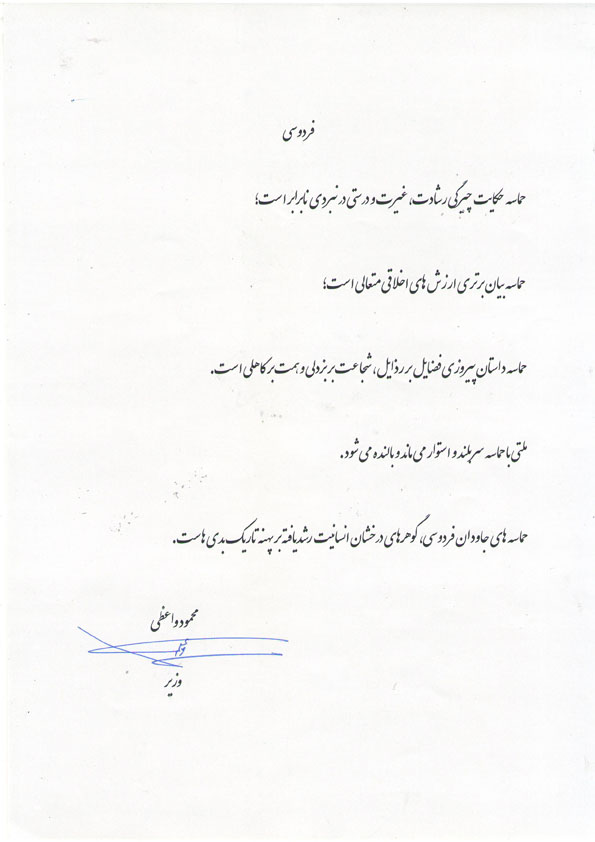 فردوسی
حماسه حکایت چیرگی رشادت، غیرت و درستی در نبردی نابرابر است؛
حماسه بیان برتری ارزش های اخلاقی متعالی است؛
حماسه داستان پیروزی فضایل بر رذایل، شجاعت بر بزدلی و همت بر کاهلی است.
ملتی با حماسه سربلند و استوار می ماند و بالنده می شود.
حماسه های جاودان فردوسی، گوهرهای درخشان انسانیت رشد یافته بر پهنه تاریک بدی هاست.
محمود واعظی
وزیر